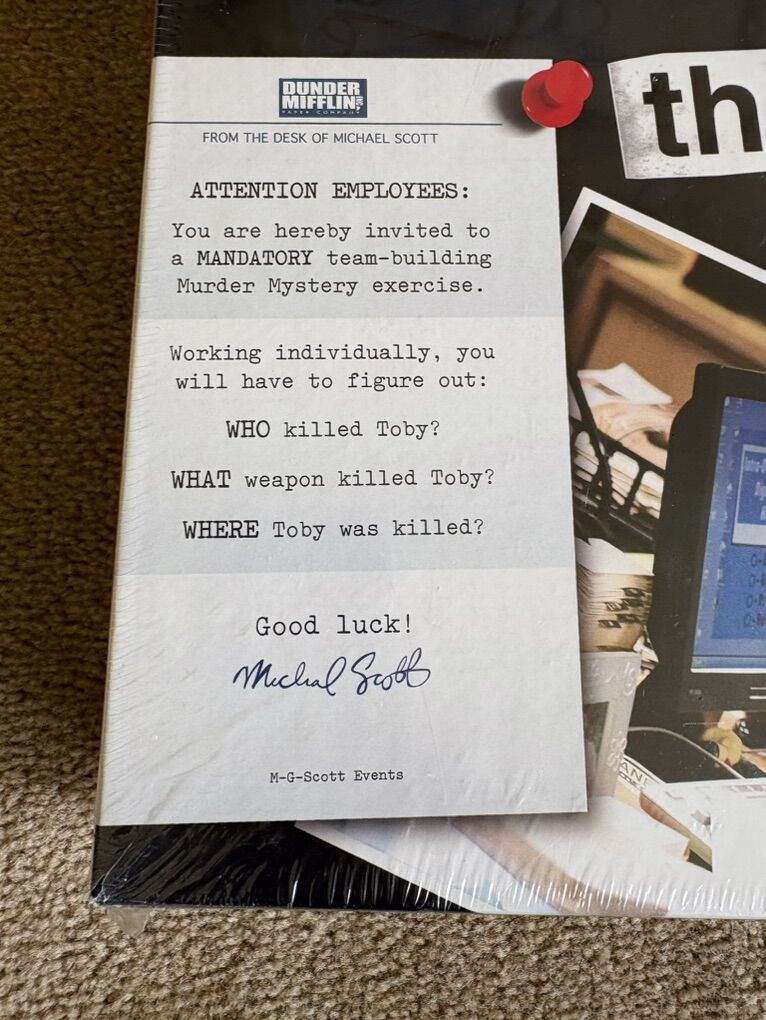 DUNDER
MIFFLIN INC
PAPER COMPANY
FROM THE DESK OF MICHAEL SCOTT
ATTENTION EMPLOYEES:
You are hereby invited to
a MANDATORY team-building
Murder Mystery exercise.
Working individually, you
will have to figure out:
WHO killed Toby?
WHAT weapon killed Toby?
WHERE Toby was killed?
Good luck!
Michael Scott
M-G-Scott Events
th